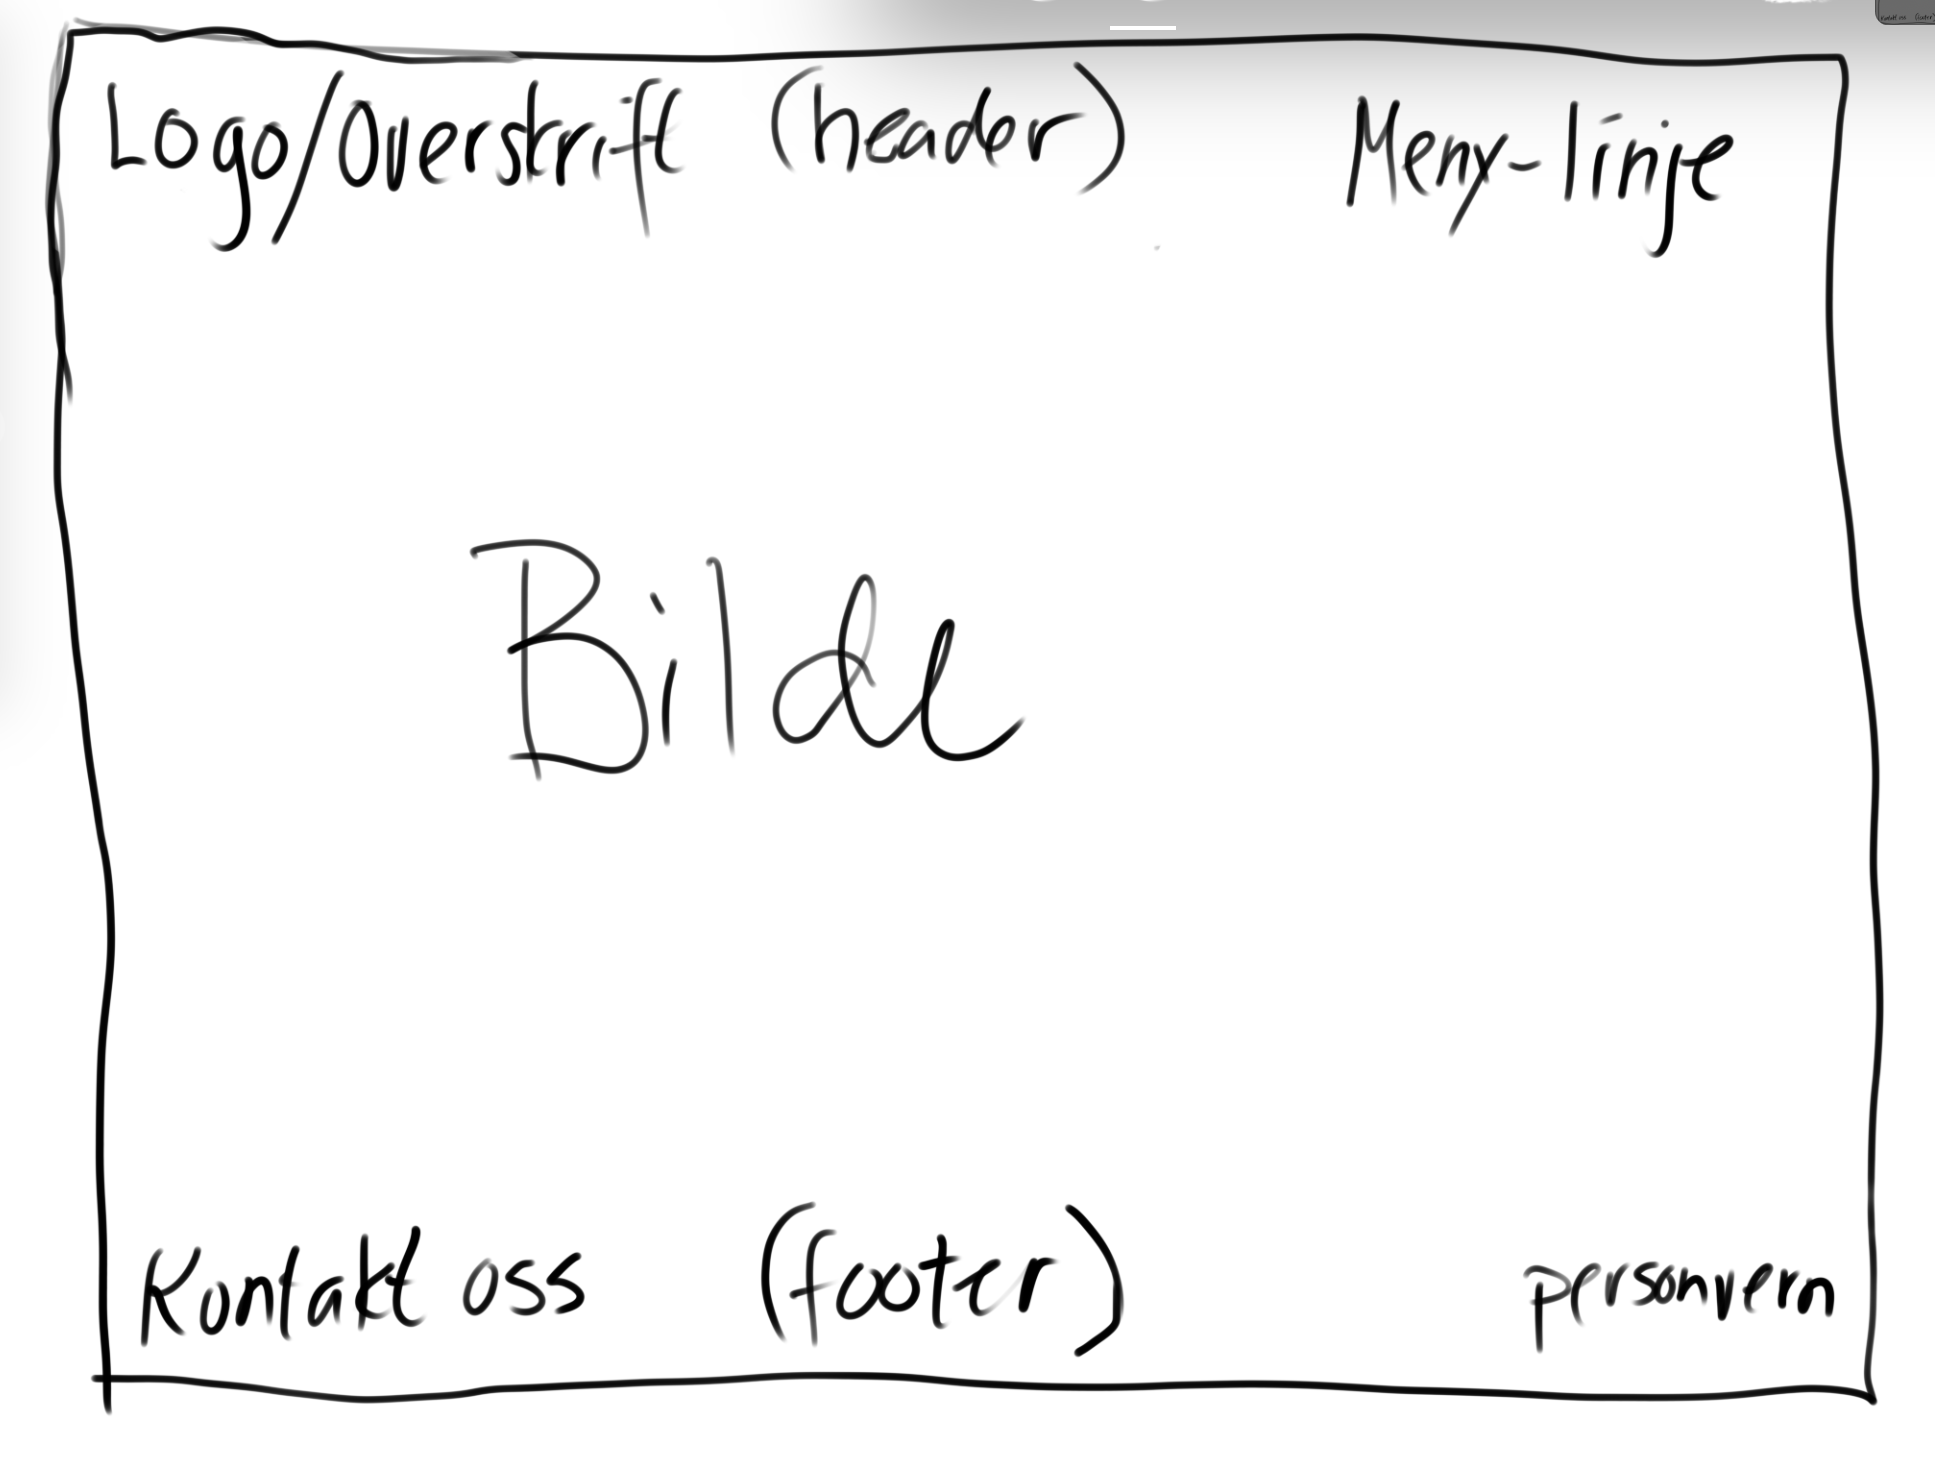 Logo/Overskrift (header) Meny-linje
Bilde
Kontakt oss (footer) personvern